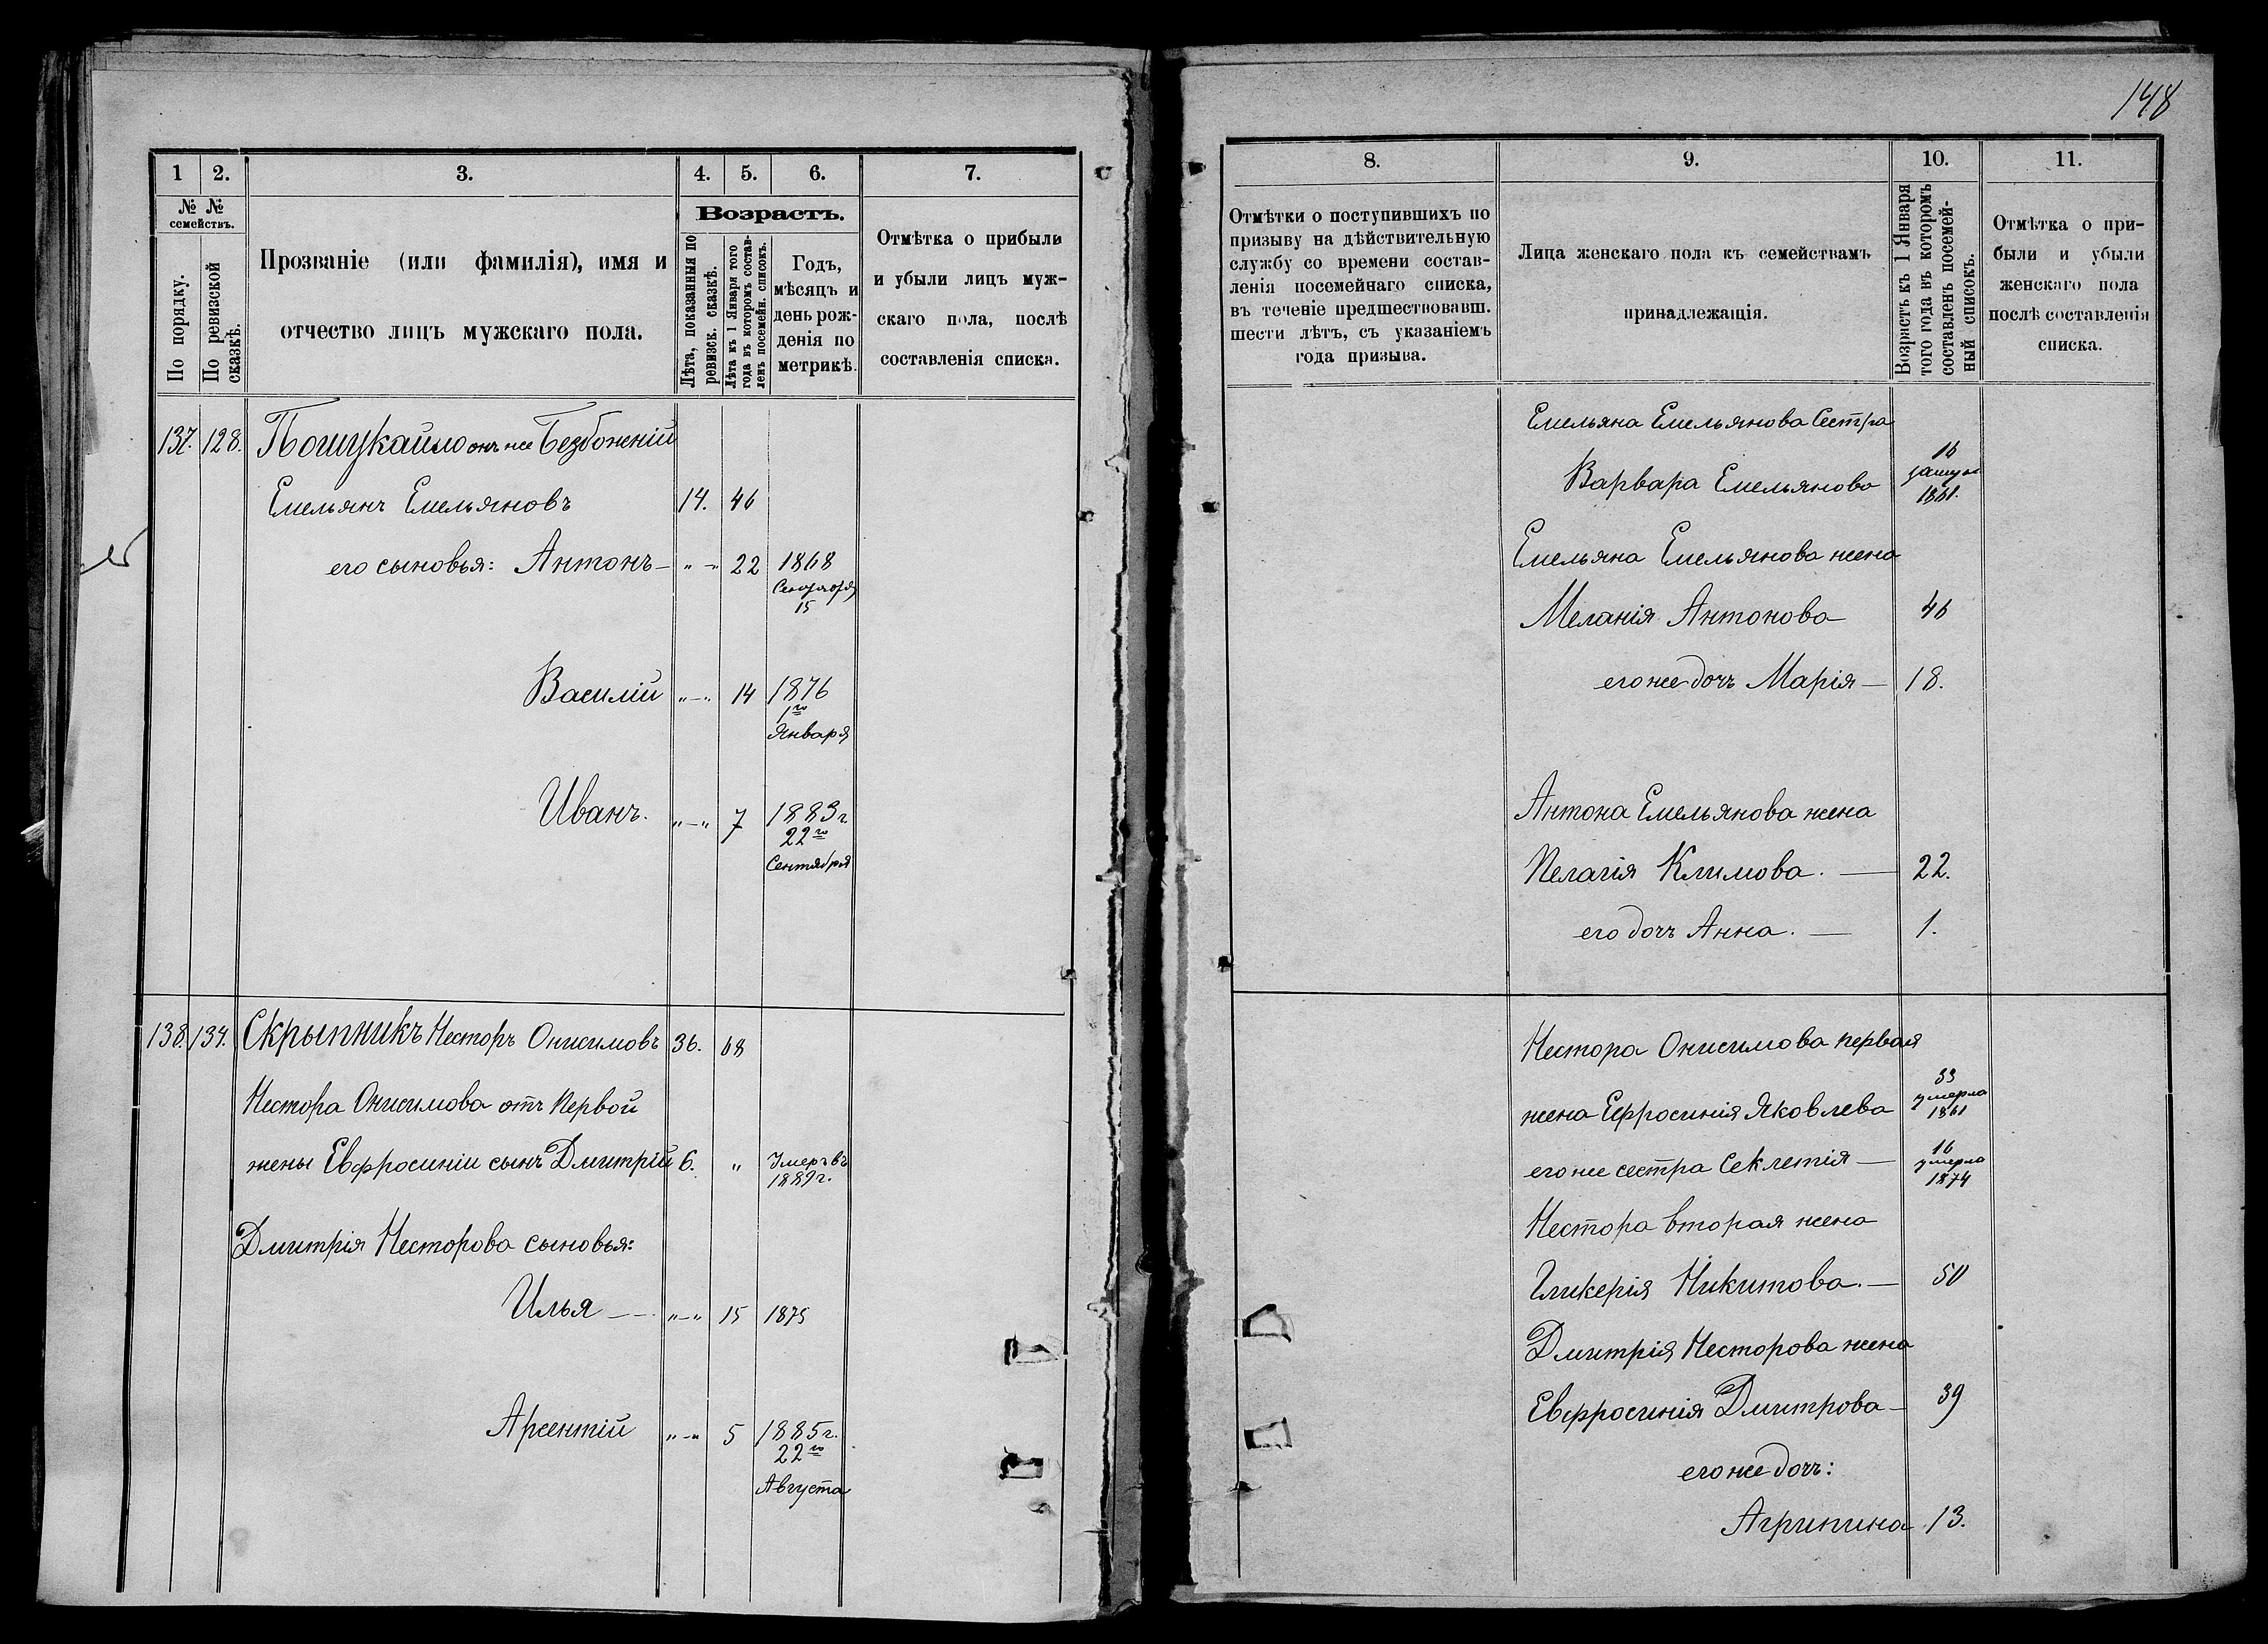 148
1 2. 3. 4. 5. 6. 7.
№ № семействъ.
По порядку.
По ревизской сказкѣ.
Прозваніе (или фамилія), имя и
отчество лицъ мужскаго пола.
Возрастъ.
Лѣта, показанныя по
ревизск. сказкѣ.
Лѣта къ 1 Января того
года въ которомъ состав-
ленъ посемейн. списокъ.
Годъ,
мѣсяцъ и
день рож-
денія по
метрикѣ.
Отмѣтка о прибыли
и убыли лицъ муж-
скаго пола, послѣ
составленія списка.
137. 128. Пошукайло онъ же Безбожній
Емельянъ Емельяновъ 14. 46
его сыновья: Антонъ — „ — „ 22 1868
15
Василій „ — „ 14 1876
1го
Января
Иванъ. „ — „ 7 1883 г
22го
Сентября
138. 134. Скрыпникъ Несторъ Онисимовъ 36. 68
Нестора Онисимова отъ первой
жены Евфросиніи сынъ Дмитрій 6. „ Умеръ въ
1889 г.
Дмитрія Несторова сыновья:
Илья — „ — „ 15 1875
Арсентій „ — „ 5 1885 г.
22го
Августа
8. 9. 10. 11.
Отмѣтки о поступившихъ по
призыву на дѣйствительную
службу со времени состав-
ленія посемейнаго списка,
въ теченіе предшествовавш.
шести лѣтъ, съ указаніемъ
года призыва.
Лица женскаго пола къ семействамъ
принадлежащія.
Возрастъ къ 1 Января
того года въ которомъ
составленъ посемей-
ный списокъ.
Отмѣтка о при-
были и убыли
женскаго пола
послѣ составленія
списка.
Емельяна Емельянова Сестра
Варвара Емельянова 16
1861.
Емельяна Емельянова жена
Меланія Антонова 46
его же дочъ Марія — 18.
Антона Емельянова жена
Пелагія Климова. — 22.
его дочъ Анна. — 1.
Нестора Онисимова первая
жена Ефросинія Яковлева 33
умерла
1861
его же сестра Секлетія — 16
умерла
1874
Нестора вторая жена
Гликерія Никитова. — 50
Дмитрія Несторова жена
Евфросинія Дмитрова — 39
его же дочъ:
Агрипина 13.